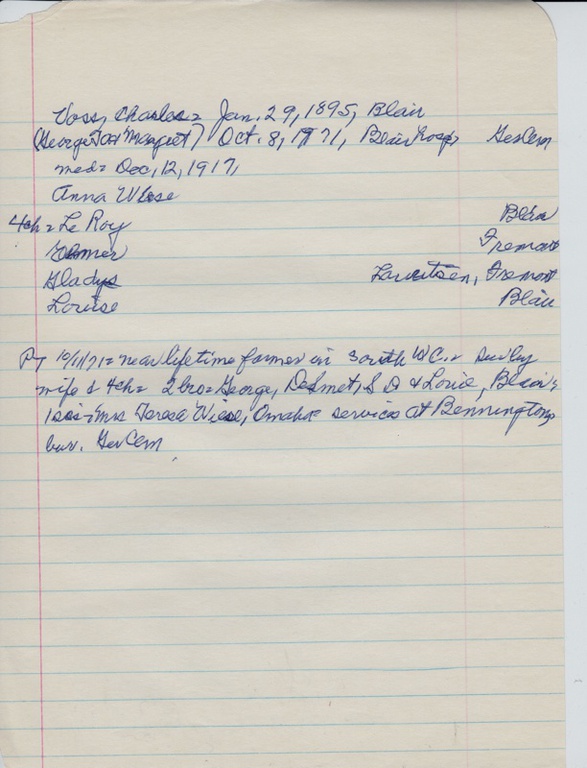 Voss, Charles = Jan. 29, 1895, Blair
(George & Margret) Oct. 8, 1971, Blair Hosp GerCem
med = Dec, 12, 1917,
Anna Wiese
4ch = Le Roy Blair
Elmer Fremont
Gladys Lauritsen, Fremont
Louise Blair
PT 10/11/71 = near lifetime farmer in South WC. = Surv by
wife & 4ch = 2 bro = George, DeSmet, S D & Louie, Blair =
1 sis = Mrs Teresa Wiese, Omaha = services at Bennington =
bur. GerCem